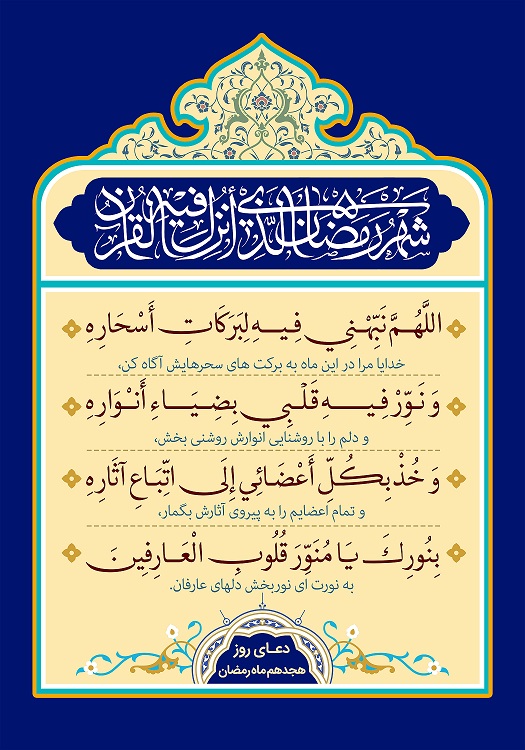 شهر رمضان الذي أنزل فيه القرآن
اللَّهُمَّ نَبِّهْنِي فِيهِ لِبَرَكَاتِ أَسْحَارِهِ
خدایا مرا در این ماه به برکت های سحرهایش آگاه کن،
وَ نَوِّرْ فِيهِ قَلْبِي بِضِيَاءِ أَنْوَارِهِ
و دلم را با روشنایی انوارش روشنی بخش،
وَ خُذْ بِكُلِّ أَعْضَائِي إِلَى اتِّبَاعِ آثَارِهِ
و تمام اعضایم را به پیروی آثارش بگمار،
بِنُورِكَ يَا مُنَوِّرَ قُلُوبِ الْعَارِفِينَ
به نورت ای نوربخش دلهای عارفان.
دعای روز
هجدهم ماه رمضان